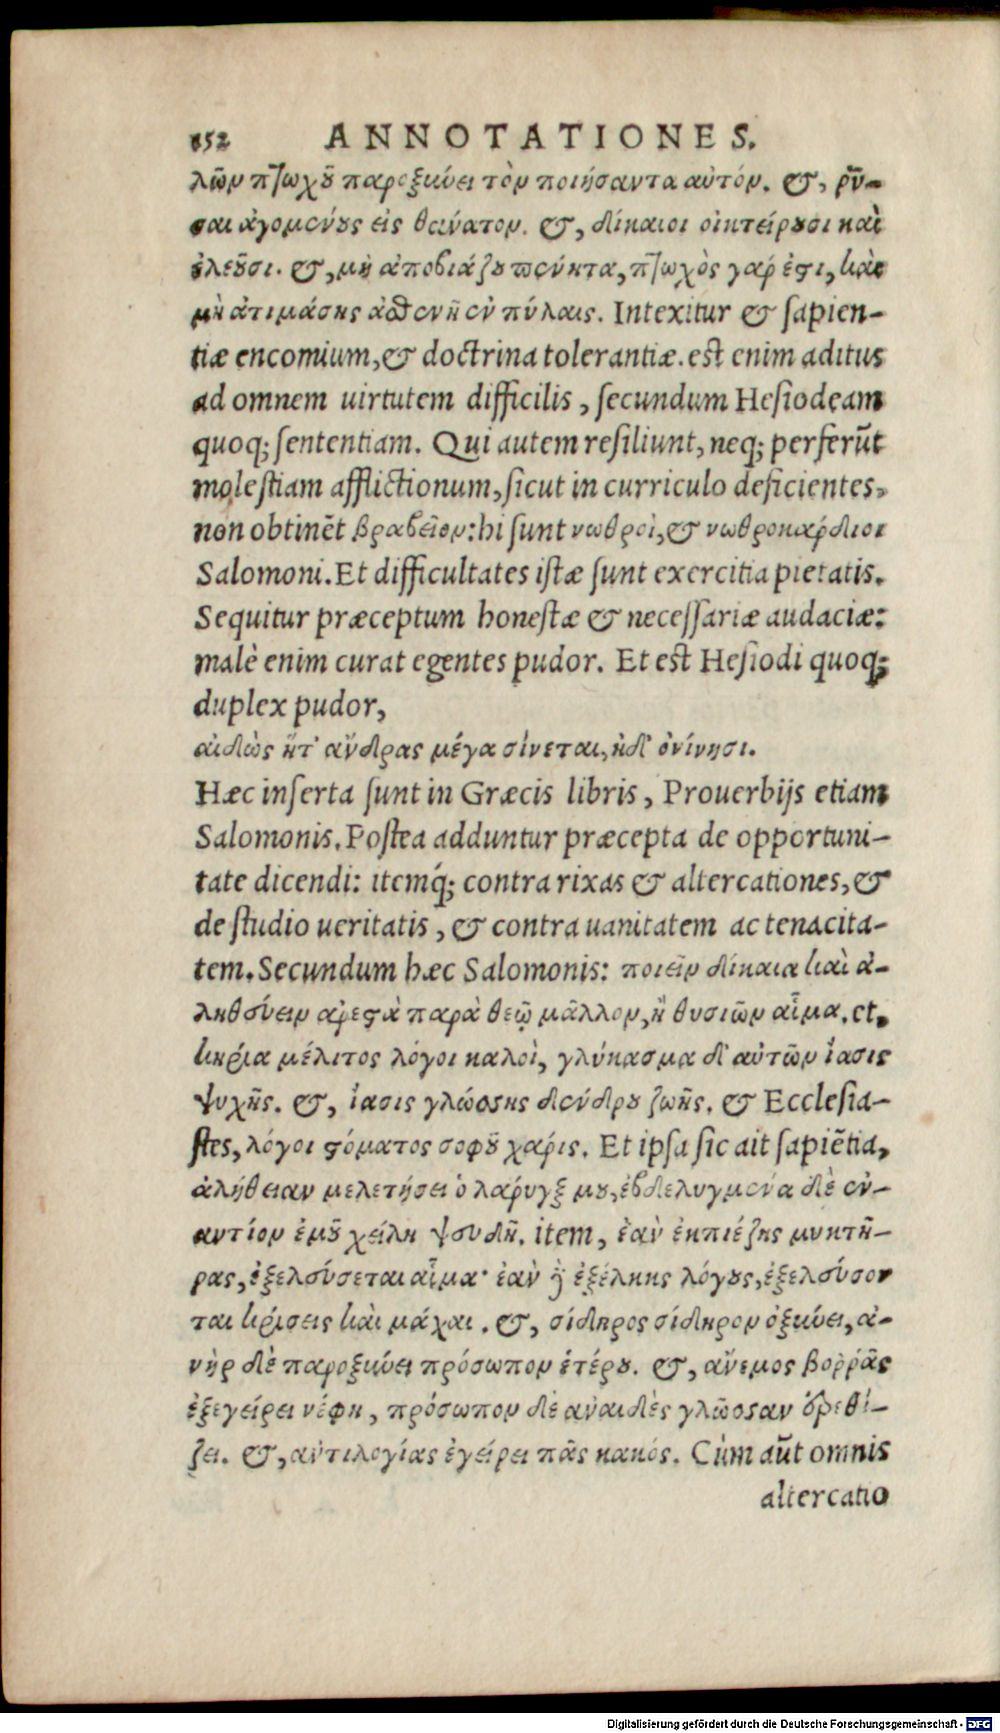 152 ANNOTATIONES.
λῶν πτωχοῦ παροξύνει τὸν ποιήσαντα αὐτόν. &, ῥῦ-
σαι ἀγομένους εἰς θάνατον. &, δίκαιοι οἰκτείρουσι καὶ
ἐλεοῦσι. &, μὴ ἀποβιάζου πένητα, πτωχὸς γάρ ἐστι, καὶ
μὴ ἀτιμάσῃς ἀσθενῆ ἐν πύλαις. Intexitur & sapien-
tiæ encomium, & doctrina tolerantiæ. est enim aditus
ad omnem uirtutem difficilis, secundum Hesiodeam
quoq; sententiam. Qui autem resiliunt, neq; perferūt
molestiam afflictionum, sicut in curriculo deficientes,
non obtinēt βραβεῖον: hi sunt νωθροὶ, & νωθροκάρδιοι
Salomoni. Et difficultates istæ sunt exercitia pietatis.
Sequitur præceptum honestæ & necessariæ audaciæ:
malè enim curat egentes pudor. Et est Hesiodi quoq;
duplex pudor,
αἰδὼς ἥτ' ἄνδρας μέγα σίνεται, ἠδ' ὀνίνησι.
Hæc inserta sunt in Græcis libris, Prouerbijs etiam
Salomonis. Postea adduntur præcepta de opportuni-
tate dicendi: itemq́; contra rixas & altercationes, &
de studio ueritatis, & contra uanitatem ac tenacita-
tem. Secundum hæc Salomonis: ποιεῖν δίκαια καὶ ἀ-
ληθεύειν ἀρεστὰ παρὰ θεῷ μᾶλλον, ἢ θυσιῶν αἷμα. et,
κηρία μέλιτος λόγοι καλοὶ, γλύκασμα δ' αὐτῶν ἴασις
ψυχῆς. &, ἴασις γλώσσης δένδρου ζωῆς. & Ecclesia-
stes, λόγοι στόματος σοφοῦ χάρις. Et ipsa sic ait sapiētia,
ἀλήθειαν μελετήσει ὁ λάρυγξ μου, ἐβδελυγμένα δὲ ἐν-
αντίον ἐμοῦ χείλη ψευδῆ. item, ἐὰν ἐκπιέζῃς μυκτῆ-
ρας, ἐξελεύσεται αἷμα· ἐὰν δὲ ἐξέλκῃς λόγους, ἐξελεύσον
ται κρίσεις καὶ μάχαι. &, σίδηρος σίδηρον ὀξύνει, ἀ-
νὴρ δὲ παροξύνει πρόσωπον ἑτέρου. &, ἄνεμος βοῤῥᾶς
ἐξεγείρει νέφη, πρόσωπον δὲ ἀναιδὲς γλῶσσαν ἐρεθί-
ζει. &, ἀντιλογίας ἐγείρει πᾶς κακός. Cùm aūt omnis
altercatio
Digitalisierung gefördert durch die Deutsche Forschungsgemeinschaft - DFG